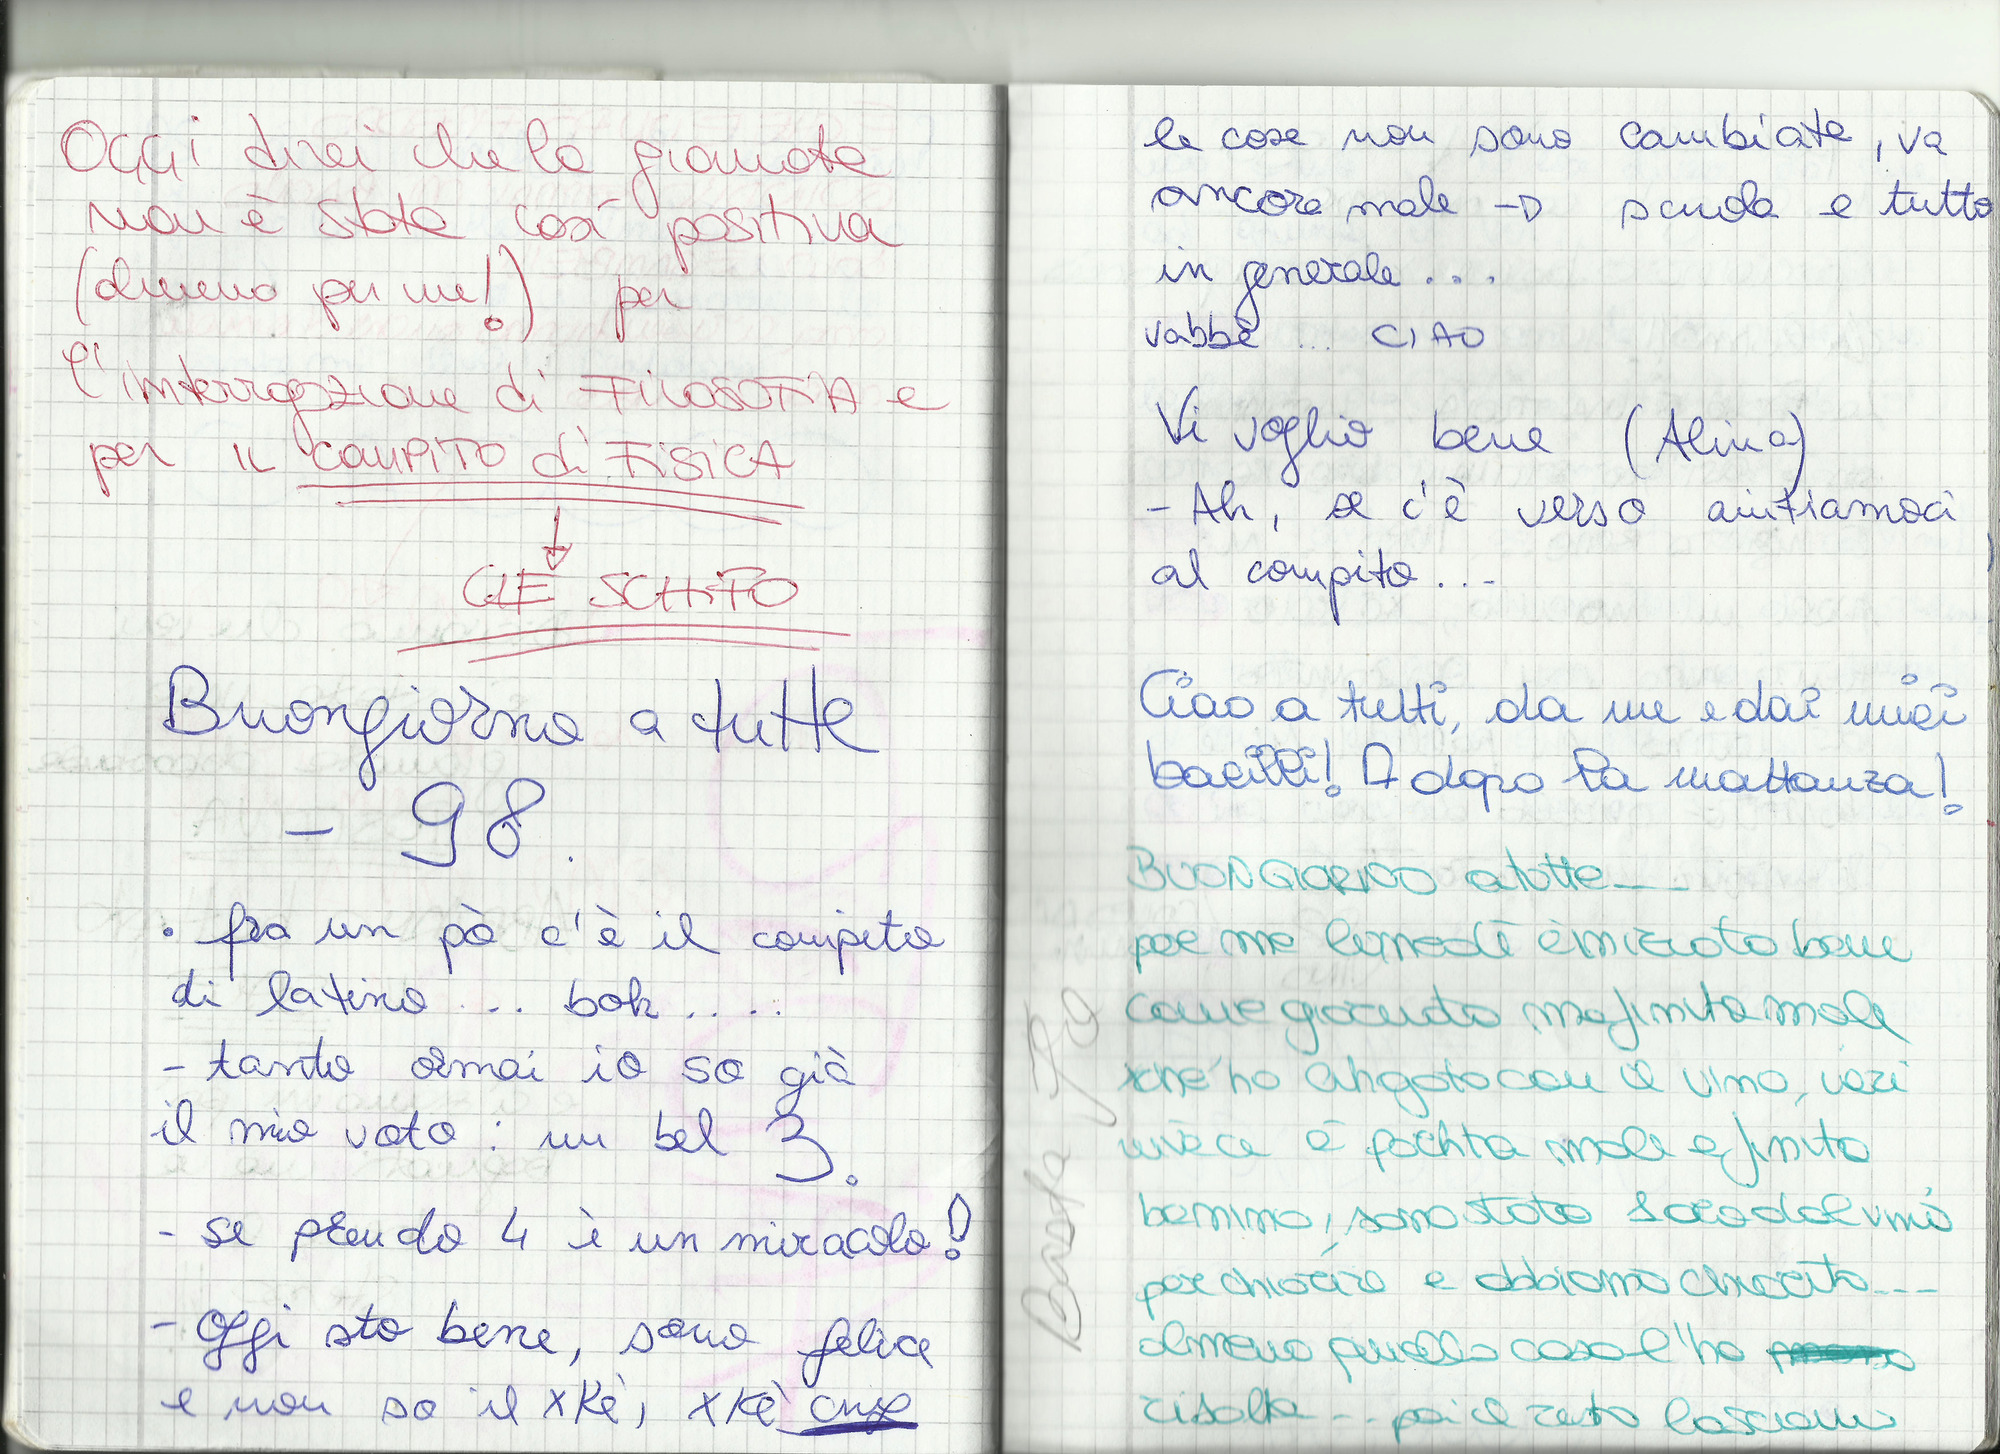 Oggi direi che la giornata
non è stata così positiva
(almeno per me!) per
l'interrogazione di FILOSOFIA e
per il COMPITO di FISICA
CHE SCHIFO
Buongiorno a tutte
- 98.
• fra un pò c'è il compito
di latino ... boh.....
- tanto ormai io so già
il mio voto: un bel 3.
- se prendo 4 è un miracolo!
- Oggi sto bene, sono felice
e non so il xKè, xKè
le cose non sono cambiate, va
ancora male -D scuola e tutto
in generale...
vabbè ... CIAO
Vi voglio bene (Alina)
- Ah, se c'è verso aiutiamoci
al compito...
Ciao a tutti, da me e dai miei
bacilli! A dopo la mattanza!
BUONGIORNO a tutte---
per me lunedì è iniziato bene
come giornata ma finita male
xké ho litigato con il vino, ieri
invece è partita male e finita
benino, sono stata io dal vino
per chiarire e abbiamo chiarito---
almeno quella cosa l'ho
risolta--- poi il resto lasciamo